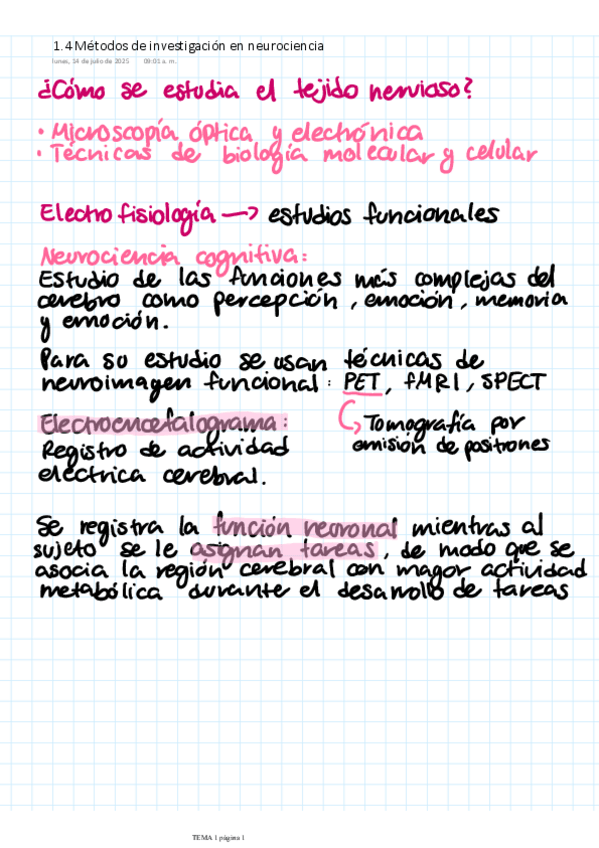 1.4 Métodos de investigación en neurociencia
lunes, 14 de julio de 2025 09:01 a. m.
¿Cómo se estudia el tejido nervioso?
• Microscopía óptica y electrónica
• Técnicas de biología molecular y celular
Electrofisiología → estudios funcionales
Neurociencia cognitiva:
Estudio de las funciones más complejas del
cerebro como percepción, emoción, memoria
y emoción.
Para su estudio se usan técnicas de
neuroimagen funcional: PET, fMRI, SPECT
Electroencefalograma:
Tomografía por
emisión de positrones
Registro de actividad
eléctrica cerebral.
Se registra la función neuronal mientras al
sujeto se le asignan tareas, de modo que se
asocia la región cerebral con mayor actividad
metabólica durante el desarrollo de tareas
TEMA 1 página 1